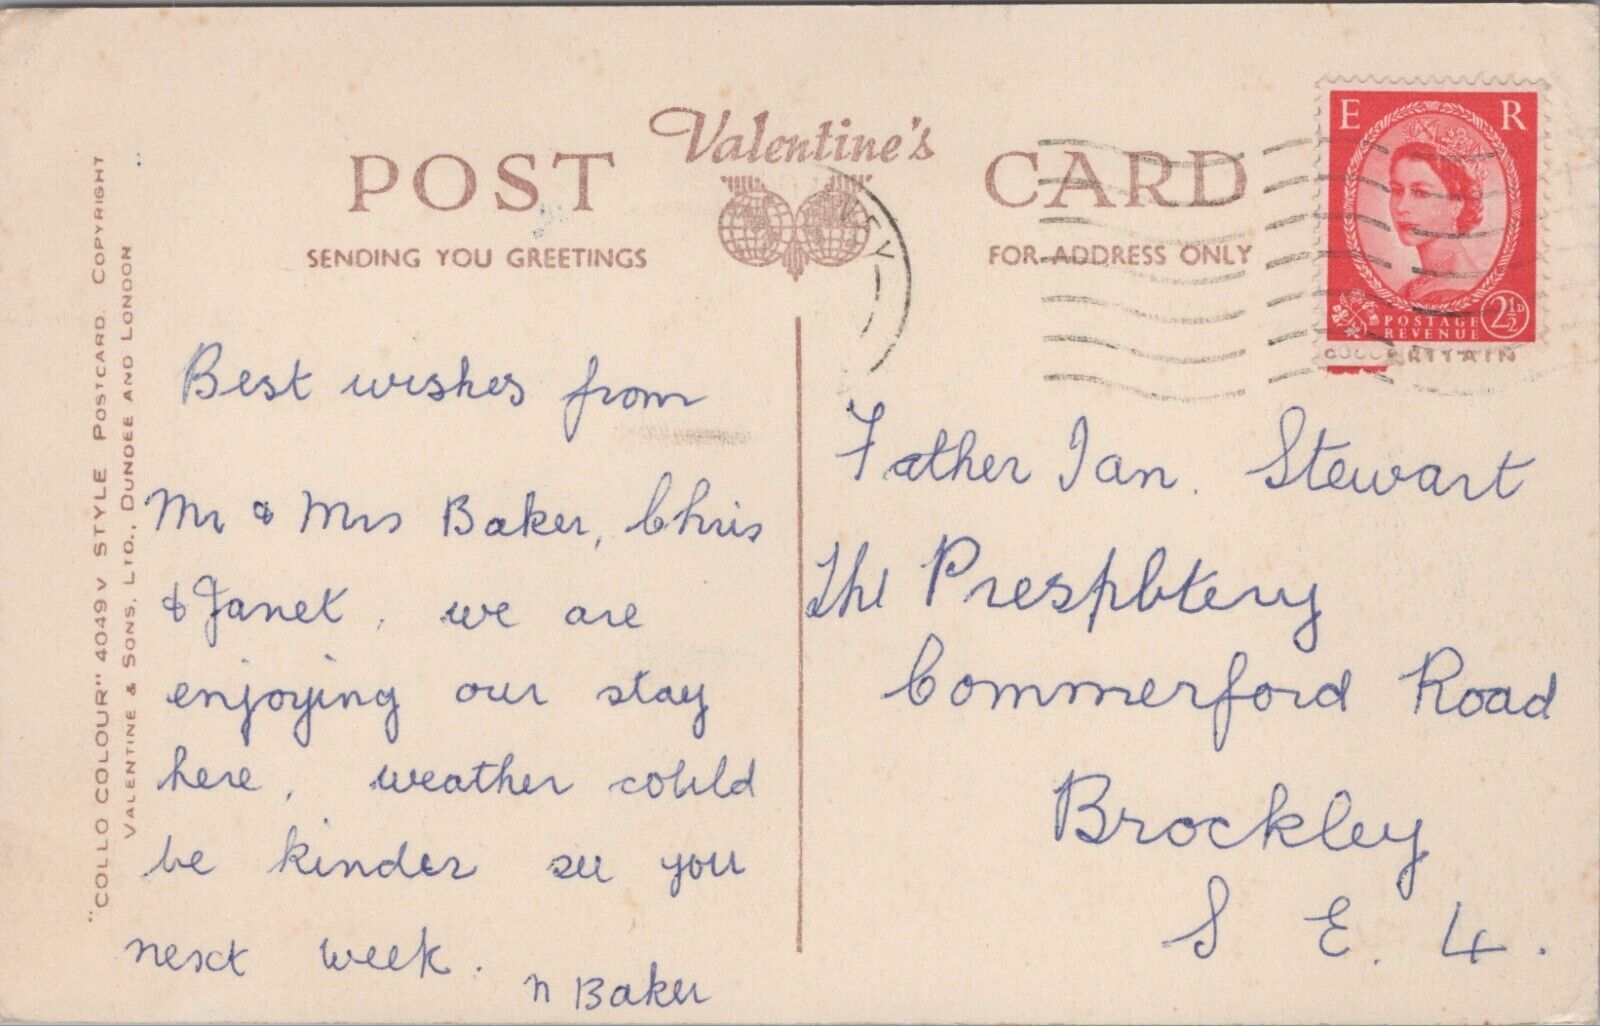 Valentine's
POST CARD
SENDING YOU GREETINGS
FOR ADDRESS ONLY
E R
POSTAGE
REVENUE
2½D
BRITAIN
"COLLO COLOUR" 4049V STYLE POSTCARD. COPYRIGHT
VALENTINE & SONS, LTD., DUNDEE AND LONDON
Best wishes from
Mr & Mrs Baker, Chris
& Janet, we are
enjoying our stay
here, weather could
be kinder see you
next week.
n Baker
Father Ian. Stewart
The Prespbtery
Commerford Road
Brockley
S E. 4.